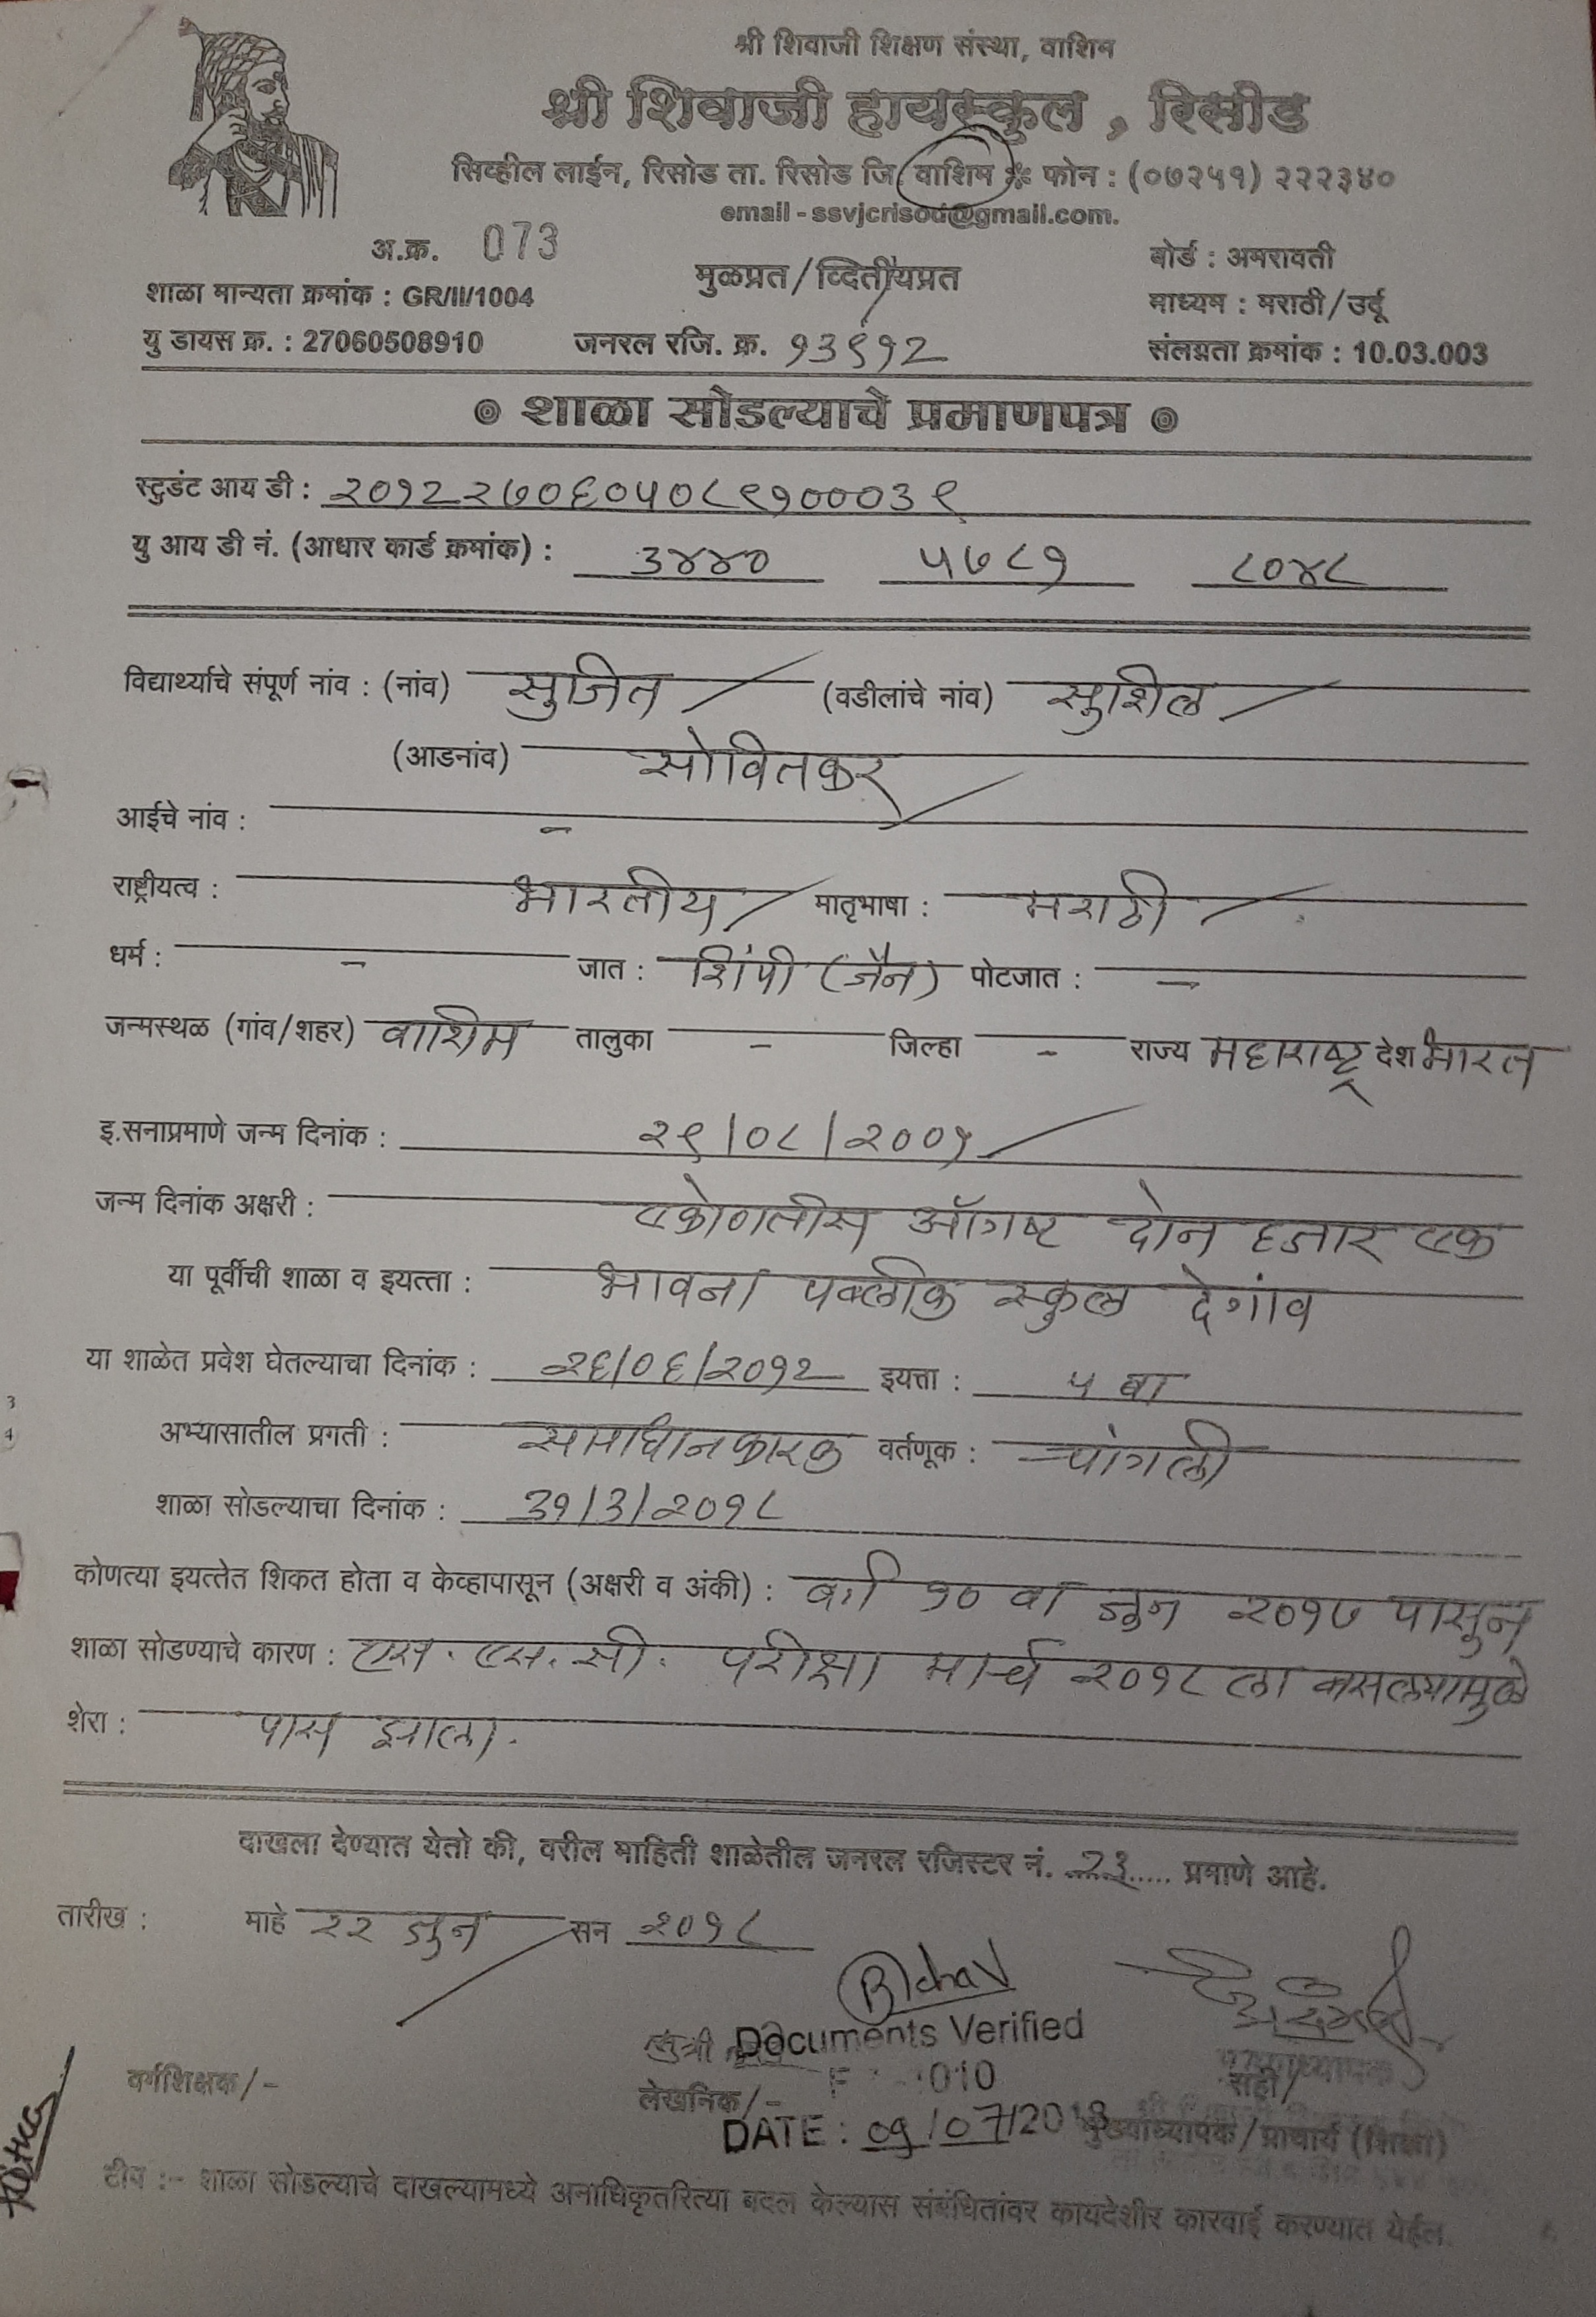 श्री शिवाजी शिक्षण संस्था, वाशिम
श्री शिवाजी हायस्कुल, रिसोड
सिव्हील लाईन, रिसोड ता. रिसोड जि. वाशिम ❈ फोन : (०७२५१) २२२३४०
email - ssvjcrisod@gmail.com.
अ.क्र. 073
मुळप्रत/व्दितीयप्रत
बोर्ड : अमरावती
शाळा मान्यता क्रमांक : GR/II/1004
माध्यम : मराठी/उर्दू
यु डायस क्र. : 27060508910 जनरल रजि. क्र. १३९१२ संलग्नता क्रमांक : 10.03.003
शाळा सोडल्याचे प्रमाणपत्र
स्टुडंट आय डी : २०१२२७०६०५०८९१०००३९
यु आय डी नं. (आधार कार्ड क्रमांक) : ३४४० ५७८१ ८०४८
विद्यार्थ्याचे संपूर्ण नांव : (नांव) सुजित (वडीलांचे नांव) सुशिल
(आडनांव) सोवितकर
आईचे नांव : -
राष्ट्रीयत्व : भारतीय मातृभाषा : मराठी
धर्म : - जात : शिंपी (जैन) पोटजात : -
जन्मस्थळ (गांव/शहर) वाशिम तालुका - जिल्हा - राज्य महाराष्ट्र देश भारत
इ.सनाप्रमाणे जन्म दिनांक : २९/०८/२००१
जन्म दिनांक अक्षरी : एकोणतीस ऑगष्ट दोन हजार एक
या पूर्वीची शाळा व इयत्ता : भावना पब्लीक स्कुल देगांव
या शाळेत प्रवेश घेतल्याचा दिनांक : २६/०६/२०१२ इयत्ता : ५ वा
अभ्यासातील प्रगती : समाधानकारक वर्तणूक : चांगली
शाळा सोडल्याचा दिनांक : ३१/३/२०१८
कोणत्या इयत्तेत शिकत होता व केव्हापासून (अक्षरी व अंकी) : वर्ग १० वा जुन २०१७ पासुन
शाळा सोडण्याचे कारण : एस. एस. सी. परीक्षा मार्च २०१८ ला बसल्यामुळे
शेरा : पास झाला.
दाखला देण्यात येतो की, वरील माहिती शाळेतील जनरल रजिस्टर नं. २३ प्रमाणे आहे.
तारीख : माहे २२ जुन सन २०१८
Documents Verified
वर्गशिक्षक/-
लेखनिक/-
सही/
DATE : 09/07/2018
मुख्याध्यापक/प्राचार्य (शिक्षा)
टीप :- शाळा सोडल्याचे दाखल्यामध्ये अनाधिकृतरित्या बदल केल्यास संबंधितांवर कायदेशीर कारवाई करण्यात येईल.